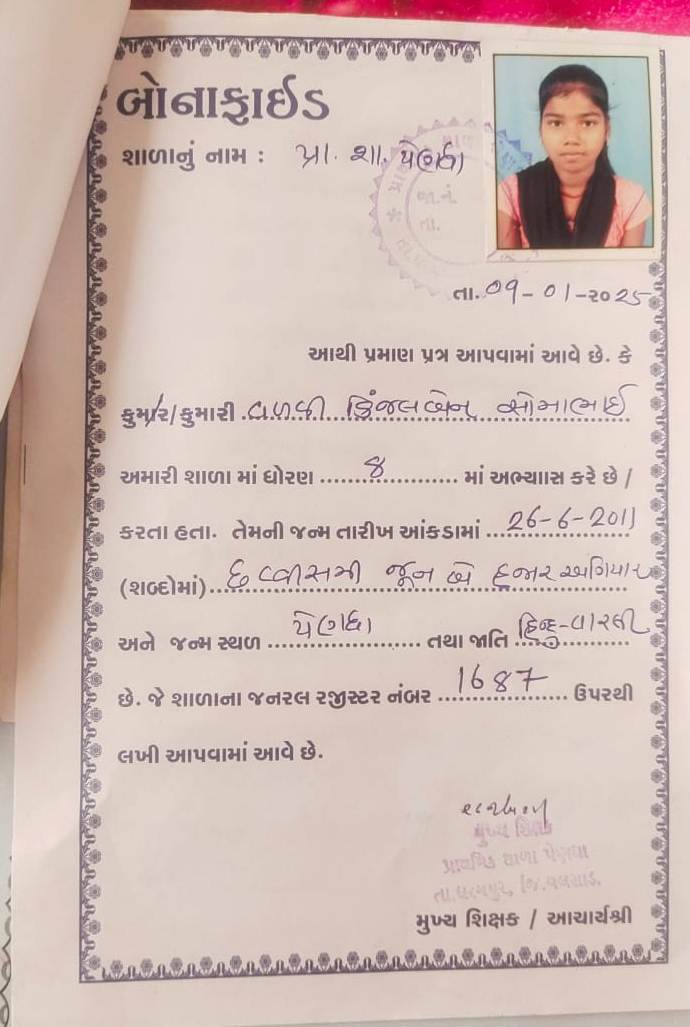 બોનાફાઇડ
શાળાનું નામ : પ્રા. શા. પેણધા
તા. 09-01-2025
આથી પ્રમાણ પત્ર આપવામાં આવે છે. કે
કુમાર/કુમારી વળવી કિંજલબેન સોમાભાઈ
અમારી શાળા માં ધોરણ 8 માં અભ્યાાસ કરે છે /
કરતા હતા. તેમની જન્મ તારીખ આંકડામાં 26-6-2011
(શબ્દોમાં) છવ્વીસમી જૂન બે હજાર અગિયાર
અને જન્મ સ્થળ પેણધા તથા જાતિ હિન્દુ-વારલી
છે. જે શાળાના જનરલ રજીસ્ટર નંબર 1687 ઉપરથી
લખી આપવામાં આવે છે.
મુખ્ય શિક્ષક
પ્રાથમિક શાળા પેણધા
તા.ધરમપુર, જિ.વલસાડ.
મુખ્ય શિક્ષક / આચાર્યશ્રી